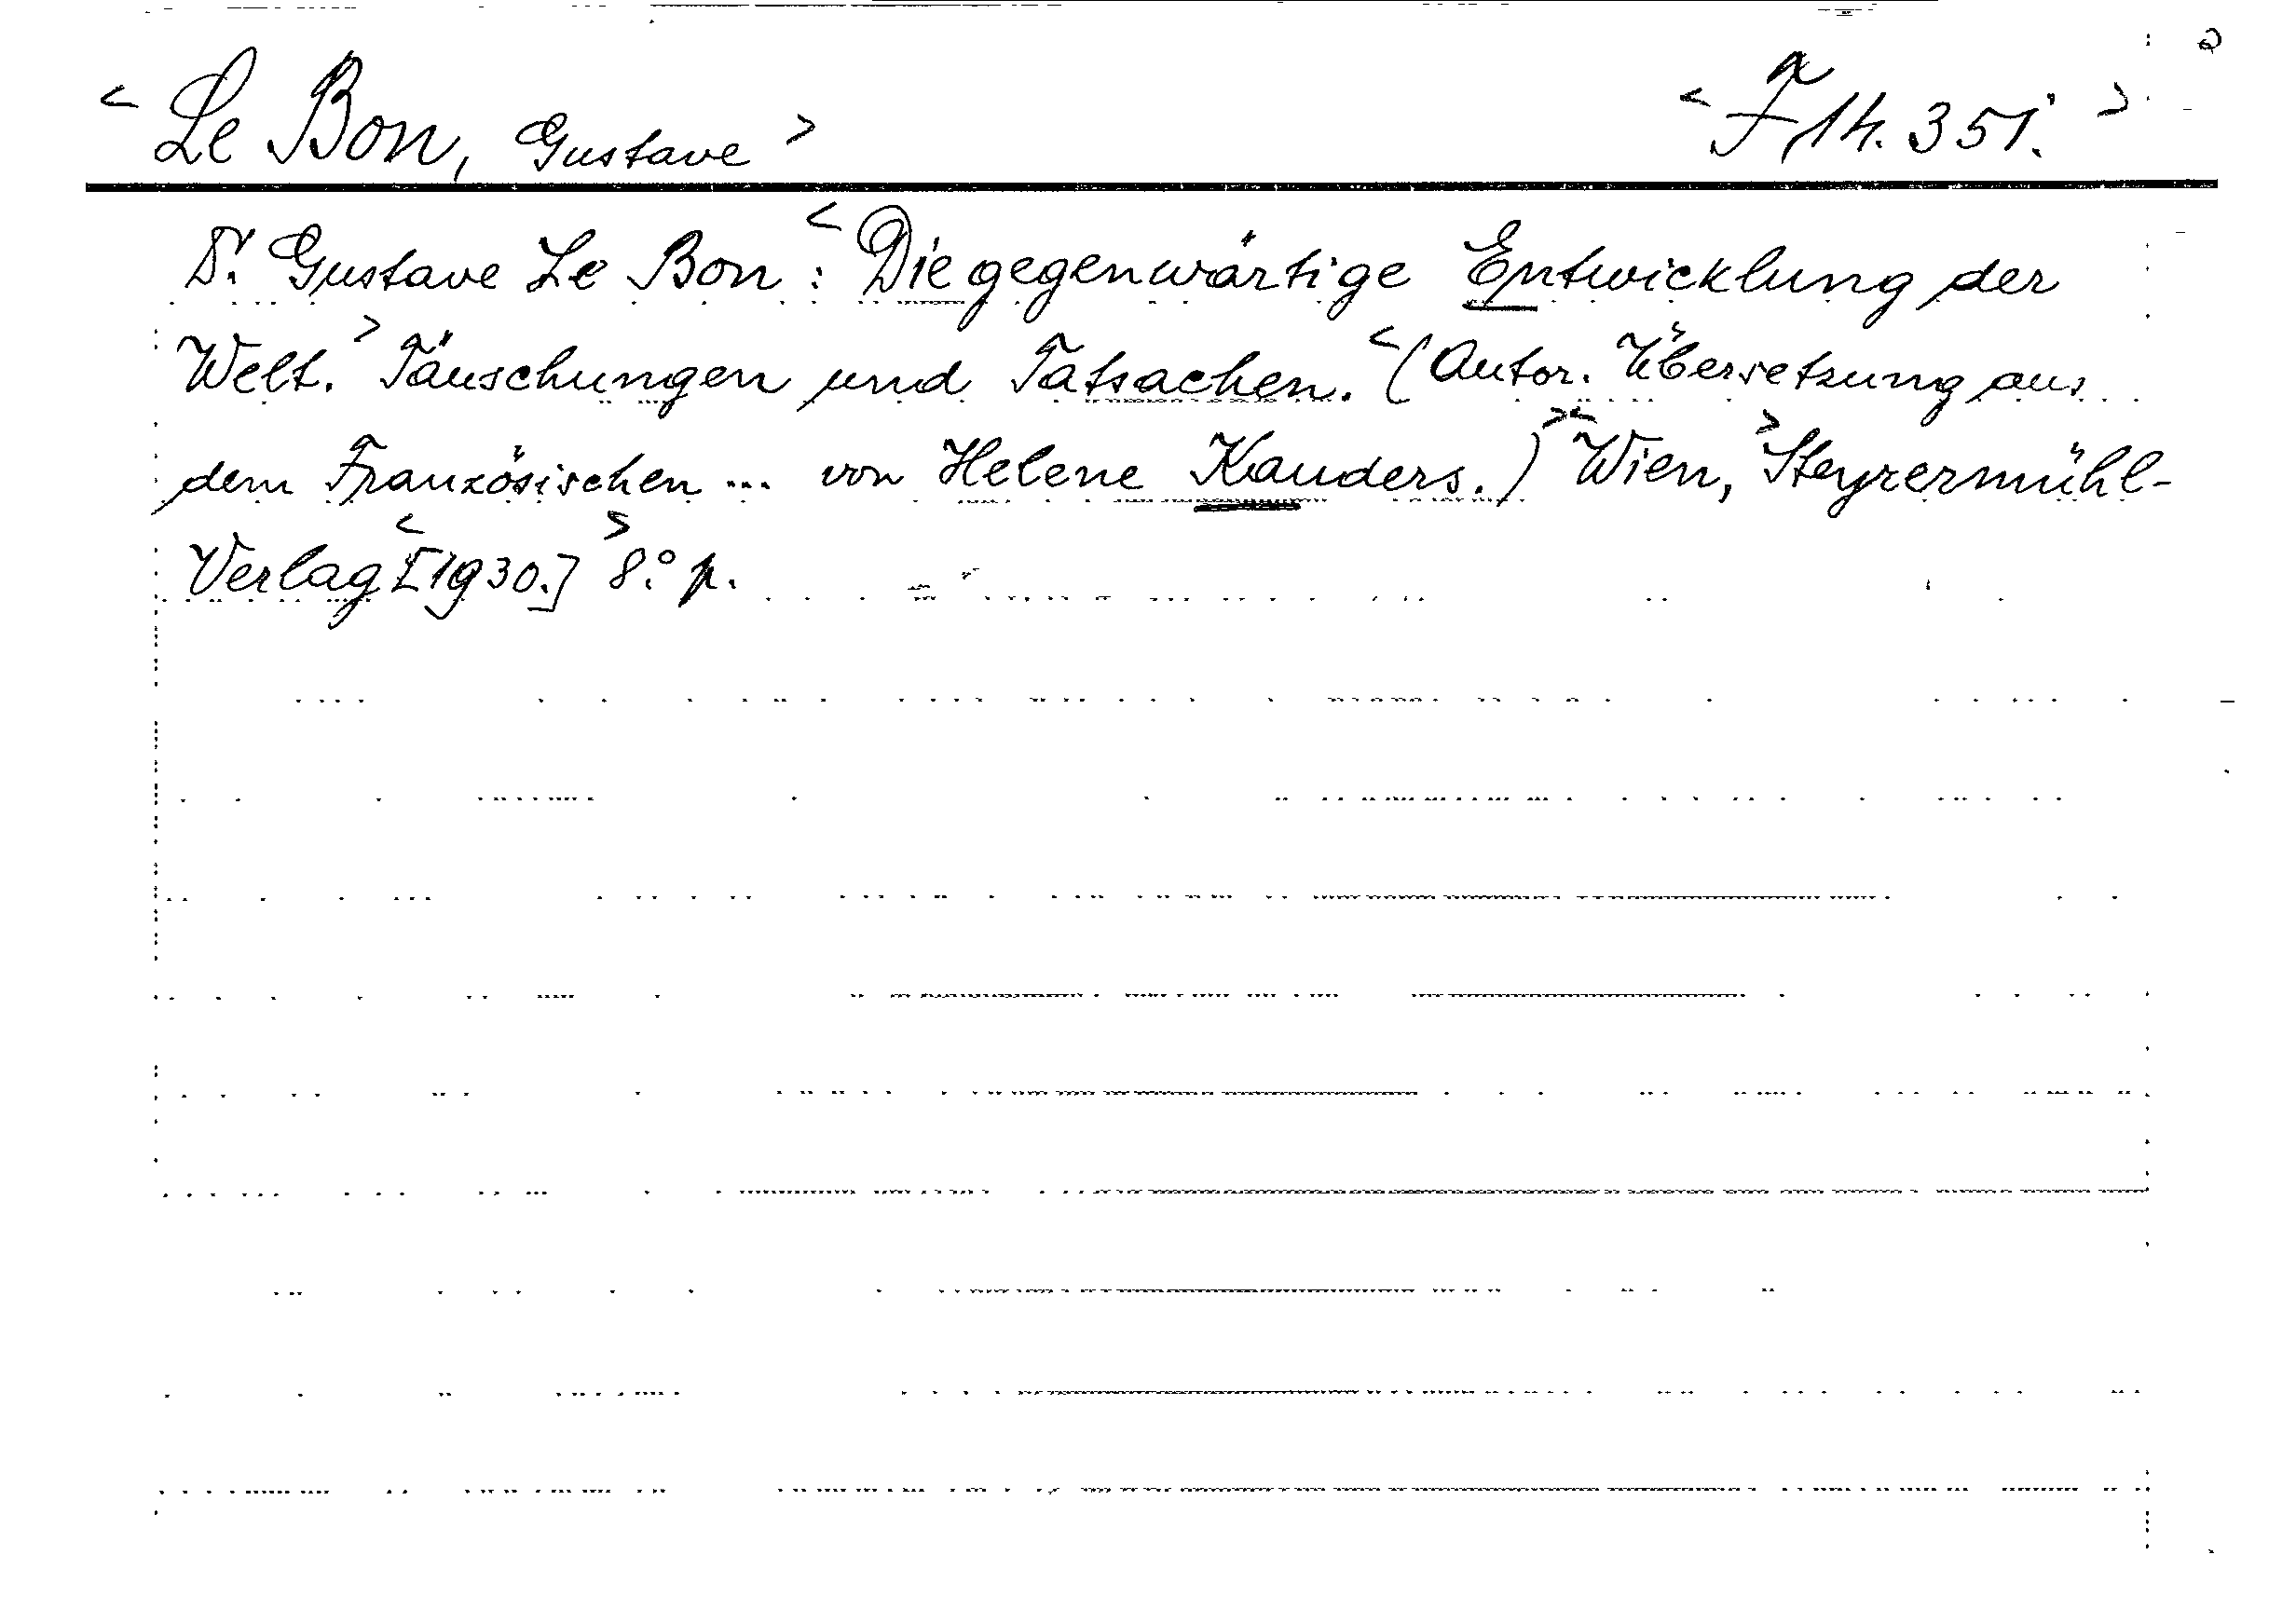 < Le Bon, Gustave > < F 14.351. >
Dr. Gustave Le Bon : < Die gegenwärtige Entwicklung der
Welt. > Täuschungen und Tatsachen. < (Autor. Übersetzung aus
dem Französischen ... von Helene Kauders.) > < Wien, > Steyrermühl-
Verlag < [1930.] > 8.° p.